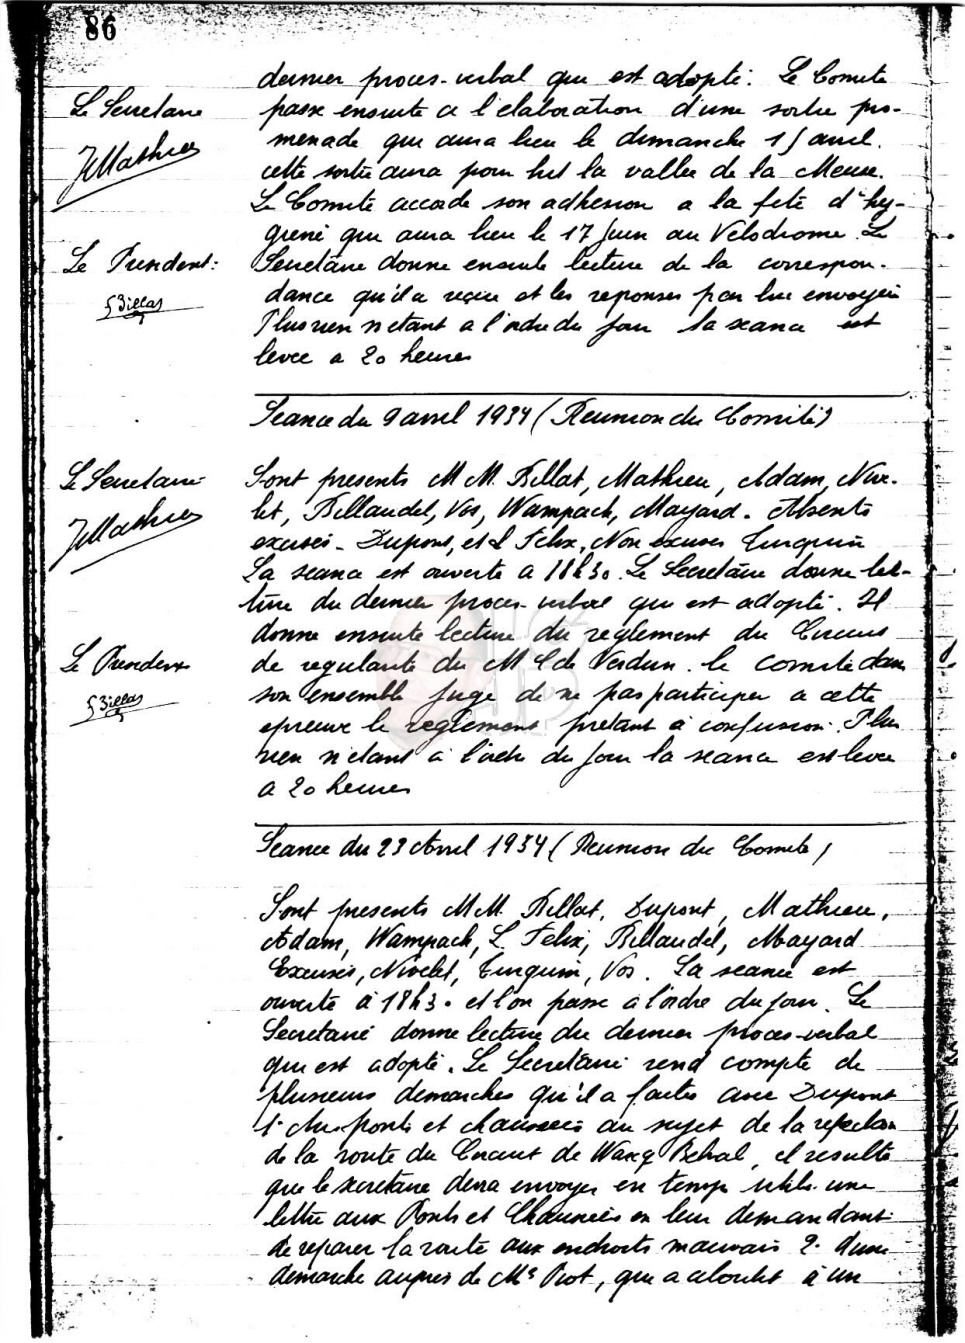 86
dernier proces-verbal qui est adopté. Le Comite
Le Secretaire
passe ensuite a l'elaboration d'une sortie pro-
menade qui aura lieu le dimanche 15 avril.
JMathieu
cette sortie aura pour but la vallée de la Meuse.
Le Comité accorde son adhesion a la fete d'hy-
giene qui aura lieu le 17 Juin au Velodrome. Le
Le President:
Secretaire donne ensuite lecture de la correspon-
dance qu'il a reçue et les reponses par lui envoyées
Billat
Plus rien n'etant a l'ordre du jour la seance est
levee a 20 heures
Seance du 9 avril 1934 (Reunion du Comité)
Le Secretaire
Sont presents M M. Billat, Mathieu, Adam, Nive-
let, Billaudel, Vos, Wampach, Mayard. Absents
JMathieu
excusés - Dupont, et L Felix, Non excuses Turquin
La seance est ouverte a 18h30. Le Secretaire donne lec-
ture du dernier proces-verbal qui est adopté. Il
donne ensuite lecture du reglement du Circuit
Le President
de regularite du M C de Verdun. le comite dans
son ensemble juge de ne pas participer a cette
Billat
epreuve le reglement pretant à confusion. Plus
rien n'etant à l'ordre du jour la seance est levee
a 20 heures
Seance du 23 Avril 1934 (Reunion du Comite)
Sont presents M M. Billat, Dupont, Mathieu,
Adam, Wampach, L Felix, Billaudel, Mayard
Excusés, Nivelet, Turquin, Vos. La seance est
ouverte à 18h30 et l'on passe à l'ordre du jour. Le
Secretaire donne lecture du dernier proces-verbal
qui est adopté. Le Secretaire rend compte de
plusieurs demarches qu'il a faites avec Dupont
1° Aux ponts et chaussées au sujet de la refection
de la route du Circuit de Warcq Belval, il resulte
que le secretaire devra envoyer en temps utile une
lettre aux Ponts et Chaussées en leur demandant
de reparer la route aux endroits mauvais 2° d'une
demarche aupres de Mr Piot, qui a abouti à un